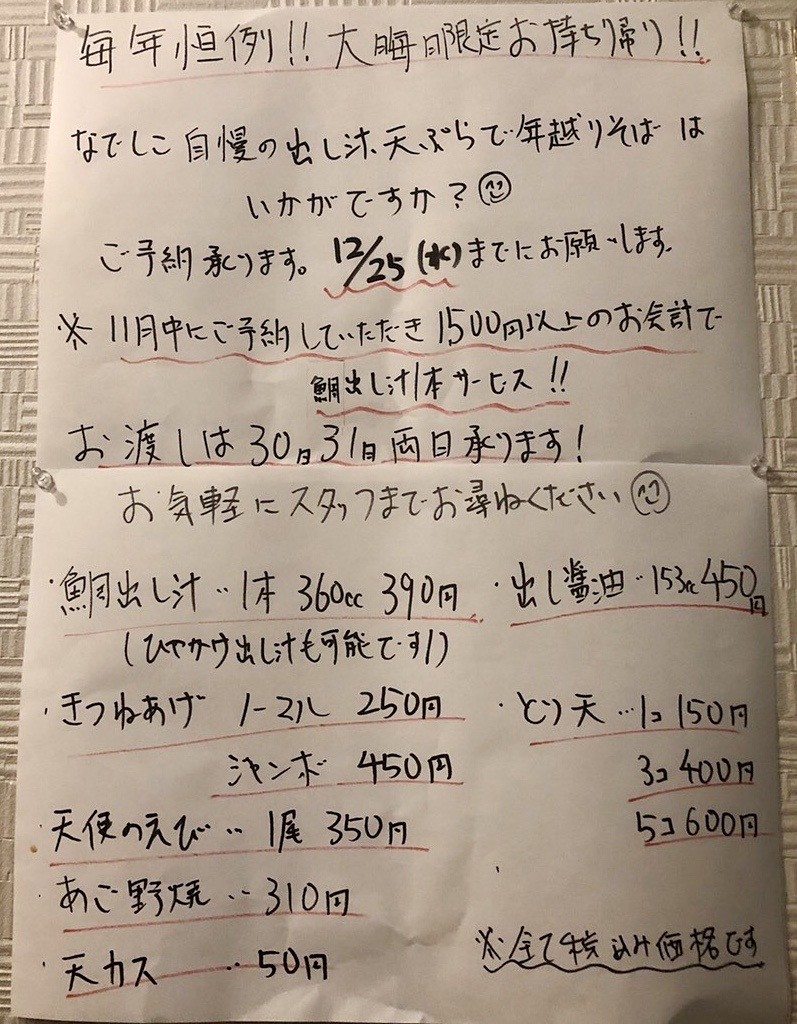 毎年恒例!! 大晦日限定お持ち帰り!!
なでしこ 自慢の出し汁、天ぷらで年越しそば は
いかがですか?
ご予約承ります。12/25(水)までにお願いします。
※ 11月中にご予約していただき1500円以上のお会計で
鯛出し汁1本サービス!!
お渡しは30日31日両日承ります!
お気軽にスタッフまでお尋ねください
・鯛出し汁‥1本 360cc 390円
(ひやかけ出し汁も可能です!)
・きつねあげ ノーマル 250円
ジャンボ 450円
・天使のえび‥1尾 350円
・あご野焼‥310円
・天カス ‥50円
・出し醤油‥153cc 450円
・とり天…1コ 150円
3コ 400円
5コ 600円
※全て税込み価格です